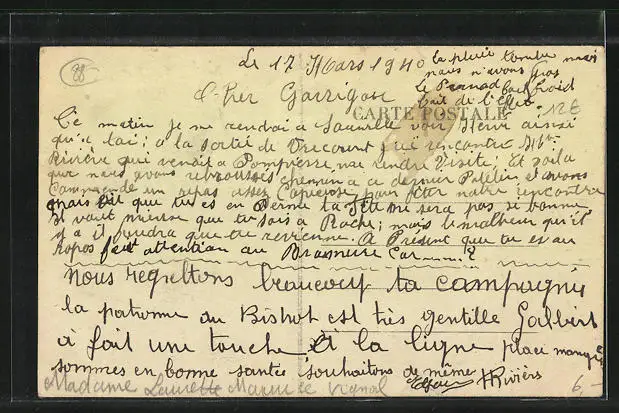 88
Le 17 Mars 1940
la pluie tombe mais
nous n'avons pas
froid
Le Pernod
fait de l'effet
12€
Cher Garrigou
CARTE POSTALE
Ce matin je me rendrai a voir Henri ainsi
qu'a lui; a la sortie de Vrecourt j'ai rencontré Mr
Rivière qui venait a Pompierre me rendre Visite; Et voila
que nous avons rebroussés chemin a ce dernier et avons
Commandé un repas assez Copieuse pour fêter notre rencontre
mais vut que tu es en Perme la fête ne sera pas si bonne
Il vaut mieux que tu sois a Roche; mais le malheur qu'il
y a il faudra que tu reviennes. A Present que tu es au
Repos fait attention au Brasserie Car......?
Nous regrettons beaucoup ta compagnie
la patronne du Bistrot est très gentille Galbert
à fait une touche et a la ligne place manque
sommes en bonne santée souhaitons de même
HRivière
Madame Laurette Vignal
6,-